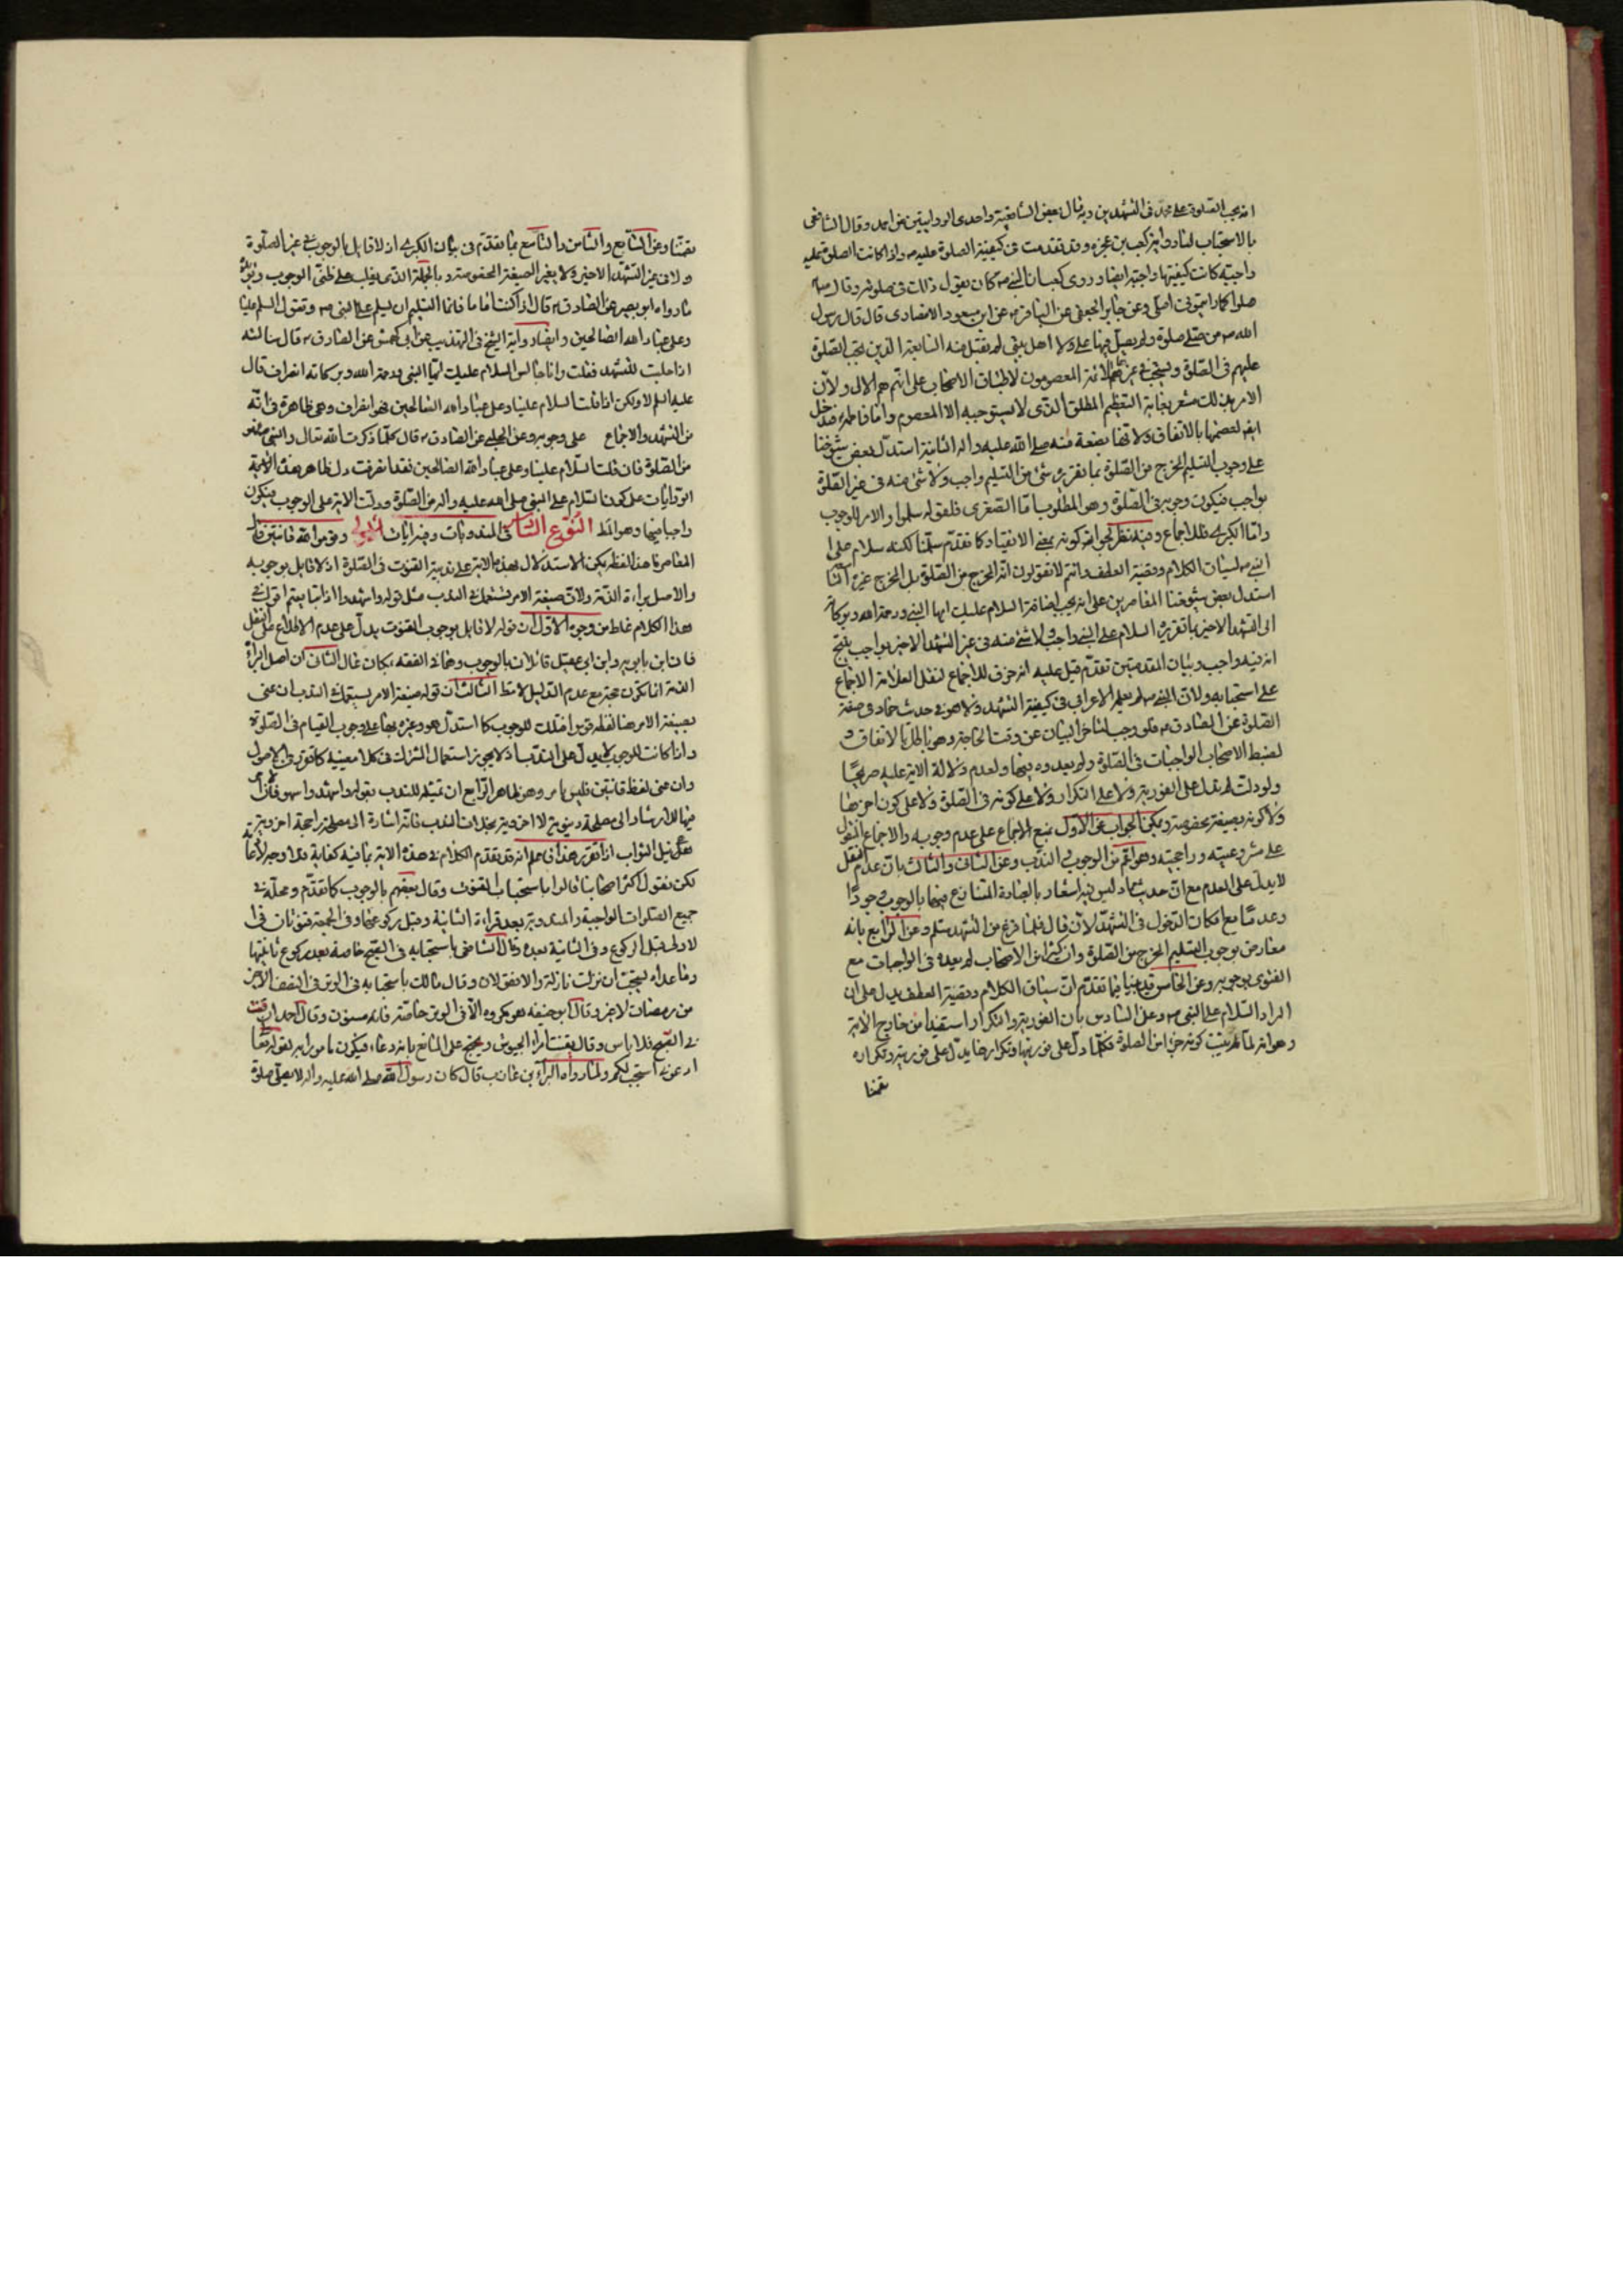 انه يجب الصلوة على محمد فى التشهدين وبه قال بعض الشافعية واحدى الروايتين عن احمد وقال الشافعى
بالاستحباب لنا رواية كعب بن عجرة وقد تقدمت فى كيفية الصلوة عليه ص واذا كانت الصلوة عليه
واجبة كانت كيفيتها واجبة ايضا وروى كعب ان النبى ص كان يقول ذلك فى صلوته وقال ص
صلوا كما رايتمونى اصلى وعن جابر الجعفى عن الباقر ع عن ابن مسعود الانصارى قال قال رسول
الله ص من صلى صلوة ولم يصل فيها على ولا اهل بيتى لم تقبل منه السابعة الذين يجب الصلوة
عليهم فى الصلوة ويستحب فى غيرها هم الائمة المعصومون لاطباق الاصحاب على انهم هم الال ولان
الامر بذلك مشعر بغاية التعظيم المطلق الذى لا يستوجبه الا المعصوم واما فاطمة ع فتدخل
ايضا لعصمتها بالاتفاق ولانها بضعة منه صلى الله عليه واله الثامنة استدل بعض شيوخنا
على وجوب التسليم المخرج من الصلوة بما تقريره شئ من التسليم واجب ولا شئ منه فى غير الصلوة
بواجب فيكون وجوبه فى الصلوة وهو المطلوب اما الصغرى فلقوله سلموا والامر للوجوب
واما الكبرى فللاجماع وفيه نظر لجواز كونه بمعنى الانقياد كما تقدم سلمنا لكنه سلام على
النبى ص لسياق الكلام وقضية العطف وانتم لا تقولون انه المخرج من الصلوة بل المخرج غيره
استدل بعض شيوخنا المعاصرين على انه يجب اضافة السلام عليك ايها النبى ورحمة الله وبركاته
الى التشهد الاخير بما تقريره السلام على النبى واجب ولا شئ منه فى غير التشهد الاخير بواجب ينتج
انه فيه واجب وبيان المقدمتين تقدم قيل عليه انه خرق للاجماع لنقل العلامة الاجماع
على استحبابه ولان النبى ص لم يعلمه الاعرابى فى كيفية التشهد ولا هو فى حديث حماد فى صفة
الصلوة عن الصادق ع فلو وجب لتاخر البيان عن وقت الحاجة وهو باطل بالاتفاق و
لضبط الاصحاب الواجبات فى الصلوة ولم يعدوه فيها ولعدم دلالة الاية عليه صريحا
ولو دلت لم تدل على الفورية ولا على التكرار ولا على كونه فى الصلوة ولا على كونه اخرها
ولا كونه بصيغة مخصوصة ويمكن الجواب عن الاول بمنع الاجماع على عدم وجوبه والاجماع المنقول
على مشروعيته وراجحيته وهو اعم من الوجوب او الندب وعن الثانى والثالث بان عدم النقل
لا يدل على العدم مع ان حديث حماد ليس فيه اشعار بالعبادة المتنازع فيها بالوجوب وجودا
وعدما مع امكان الدخول فى التشهد لانه قال فلما فرغ من التشهد سلم وعن الرابع بانه
معارض بوجوب التسليم المخرج من الصلوة وان كثيرا من الاصحاب لم يعده فى الواجبات مع
الفتوى بوجوبه وعن الخامس قد بينا فيما تقدم ان سياق الكلام وقضية العطف يدل على ان
المراد السلام على النبى ص وعن السادس بان الفورية والتكرار استفيدا من خارج الاية
وهو انه لما ثبت كونه جزءا من الصلوة فكلما دل على فوريتها وتكرارها يدل على فوريته وتكراره
تضمنا
تضمنا وعن السابع والثامن والتاسع بما تقدم فى بيان الكبرى اذ لا قايل بالوجوب فى غير الصلوة
ولا فى غير التشهد الاخير ولا بغير الصيغة المخصوصة وبالجملة الذى يغلب على ظنى الوجوب ويؤيده
ما رواه ابو بصير عن الصادق ع قال اذا كنت اماما فانما التسليم ان تسلم على النبى ص وتقول السلم علينا
وعلى عباد الله الصالحين وايضا رواية الشيخ فى التهذيب عن ابى كهمش عن الصادق ع قال سالته
اذا جلست للتشهد فقلت وانا جالس السلام عليك ايها النبى ورحمة الله وبركاته انصراف قال
عليه السلم لا ولكن اذا قلت السلام علينا وعلى عباد الله الصالحين فهو انصراف وهى ظاهرة فى انه
من التشهد والاجماع على وجوبه وعن الحلبى عن الصادق ع قال كلما ذكرت الله تعالى والنبى ص فهو
من الصلوة فان قلت السلام علينا وعلى عباد الله الصالحين فقد انصرفت دل ظاهر هذه
الروايات على كون السلام على النبى صلى الله عليه واله من الصلوة ودلت الاية على الوجوب فيكون
واجبا فيها وهو المط النوع الثامن فى المندوبات وفيه ايات الاولى وقوموا لله قانتين قال
المعاصر هذا اللفظ يمكن الاستدلال بهذه الاية على ندبية القنوت فى الصلوة اذ لا قايل بوجوبه
والاصل براءة الذمة ولان صيغة الامر تستعمل فى الندب مثل قوله واشهدوا اذا تبايعتم اقول فى
هذا الكلام غلط من وجوه الاول ان قوله لا قايل بوجوب القنوت يدل على عدم الاطلاع على النقل
فان ابن بابويه وابن ابى عقيل قائلان بالوجوب وهما فى الفقه بمكان عال الثانى ان اصل البراءة
الذمة انما تكون حجة مع عدم الدليل لا مط الثالث ان قوله صيغة الامر يستعمل فى الندب ان عنى
بصيغة الامر هنا لفظ قوموا فتلك للوجوب كما استدل هو وغيره بها على وجوب القيام فى الصلوة
واذا كانت للوجوب لا يدل على الندب اذ لا يجوز استعمال المشترك فى كلا معنييه كما قرر فى الاصول
وان عنى لفظ قانتين فليس بامر وهو ظاهر الرابع ان تمثيله للندب بقوله واشهدوا سهو فان الامر
فيها للارشاد الى مصلحة دنيوية لا اخروية بخلاف الندب فانه اشارة الى مصلحة راجحة اخروية
هى نيل الثواب اذا تقرر هذا فاعلم انه قد تقدم الكلام فى هذه الاية بما فيه كفاية فلا وجه لاعادته
لكن نقول اكثر اصحابنا قالوا باستحباب القنوت وقال بعضهم بالوجوب كما تقدم ومحله فى
جميع الصلوات الواجبة والمندوبة بعد قراءة الثانية وقبل ركوعها وفى الجمعة قنوتان فى
الاولى قبل الركوع وفى الثانية بعده وقال الشافعى باستحبابه فى الصبح خاصة بعد ركوع ثانيتها
وما عداه يستحب ان نزلت نازلة والا فقولان وقال مالك باستحبابه فى الوتر فى النصف الاخير
من رمضان لا غير وقال ابو حنيفه هو مكروه الا فى الوتر خاصة فانه مسنون وقال احمد ان قنت
فى الصبح فلا باس وقال يقنت امراء الجيوش ويحتج على المانع بانه دعاء فيكون مامورا به لقوله تعا
ادعونى استجب لكم ولما رواه البراء بن عازب قال كان رسول الله صلى الله عليه واله لا يصلى صلوة